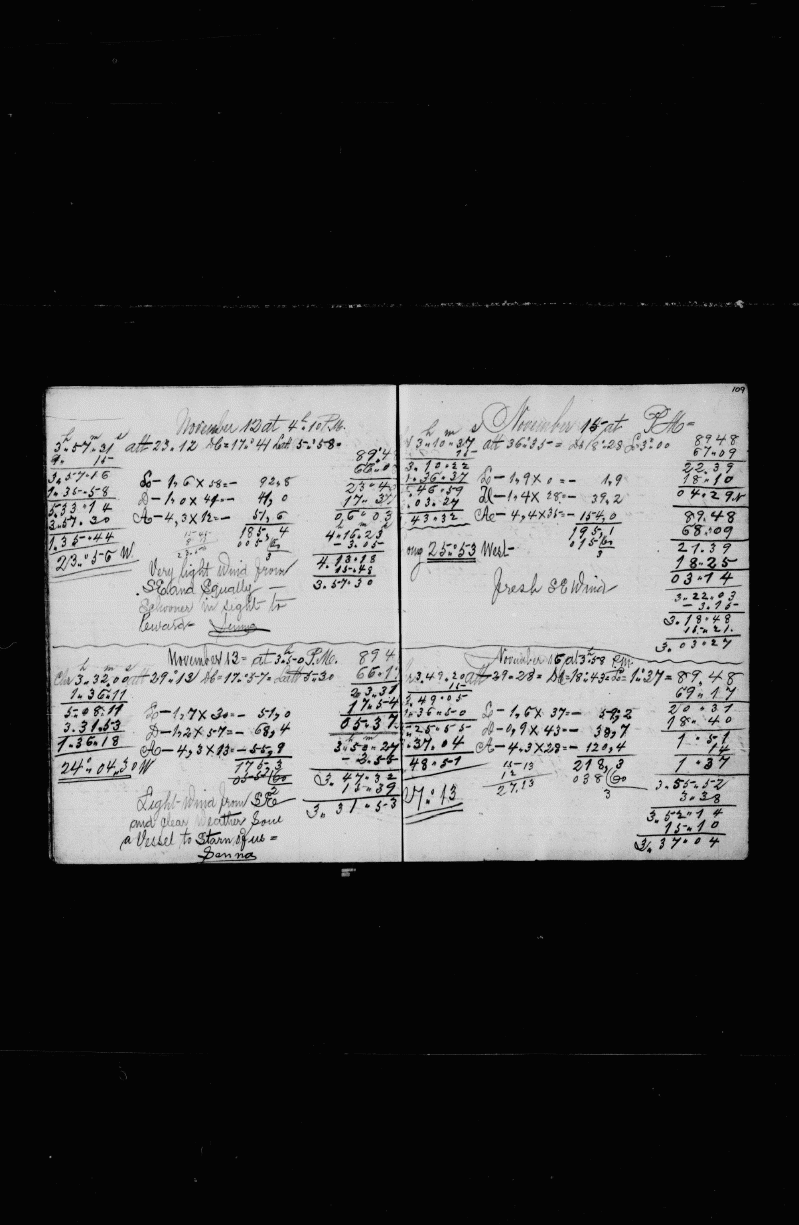 November 12 at 4h 10 P.M.
3h 57m 31s alt 23.12 Db=17.41 Lat 5.58
15
3.57.16
1.35.58
5.33.14
3.57.30
1.35.44
23.56 W.
L-1,6 x 58=- 92,8
D-1,0 x 41=- 41,0
A-4,3 x 12=- 51,6
185,4
3
Very light wind from
SE and Squally
Schooner in sight to
Leward
17.37
06.03
4.16.23
-3.05
4.13.18
15.48
3.57.30
November 13= at 3h 50 P.M.
Chr 3h 32m 00s alt 29.13 Db=17.57= Latt 5.30
1.36.11
5.08.11
3.31.53
1.36.18
24.04,30 W
L-1,7 x 30=- 51,0
D-1,2 x 57=- 68,4
A-4,3 x 13=- 55,9
175,3
3
Light wind from SE
and clear weather Some
a Vessel to Starn of us=
23.31
17.54
05.37
3h 50m 24
-2.55
3.47.32
15.39
3.31.53
109
November 15 at P.M=
3h 10m 37s alt 36.35= Db 18.28 L 3.00
15
3.10.22
1.36.37
46.59
03.27
43.32
Long 25.53 West
L-1,9 x 0=- 1,9
D-1,4 x 28=- 39,2
A-4,4 x 35=- 154,0
195,1
3
fresh SE Wind
8948
67.09
22.39
18.10
04.29 N
89.48
68.09
21.39
18.25
03.14
3.22.03
-3.15
3.18.48
15.21
3.03.27
November 16 at 3h 58 P.M.
3.49.20 alt 29.28= Db=18.43= Lo=1.37=
15
3.49.05
1.36.50
25.55
37.04
48.51
27.13
L-1,6 x 37=- 59,2
D-0,9 x 43=- 38,7
A-4.3 x 28=- 120,4
218,3
3
15-13
12
27.13
89.48
69.17
20.31
18.40
1.51
14
1.37
3.55.52
3.38
3.52.14
15.10
3.37.04